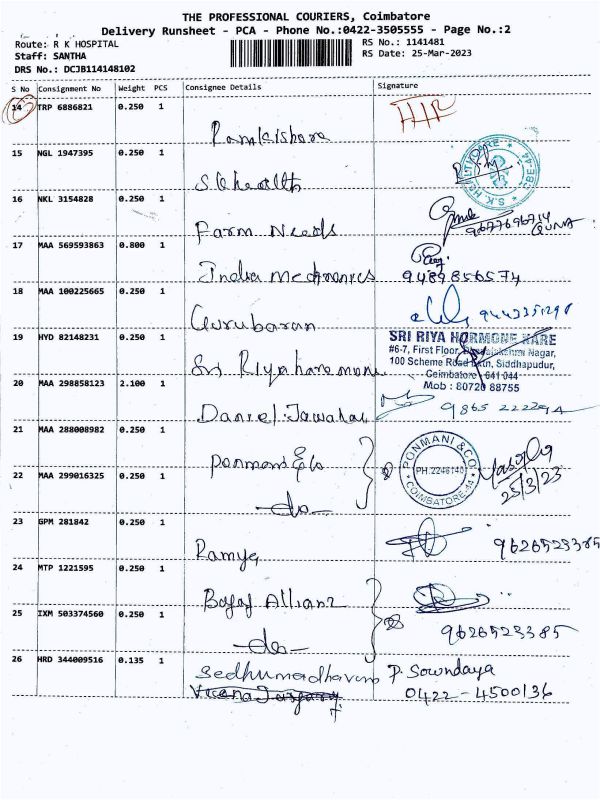 THE PROFESSIONAL COURIERS, Coimbatore
Delivery Runsheet - PCA - Phone No.:0422-3505555 - Page No.:2
Route: R K HOSPITAL
Staff: SANTHA
DRS No.: DCJB114148102
RS No.: 1141481
RS Date: 25-Mar-2023
S No Consignment No Weight PCS Consignee Details Signature
14 TRP 6886821 0.250 1
Ramkishore
15 NGL 1947395 0.250 1
SK health
16 NKL 3154828 0.250 1
Farm Needs 9677696714
GUNA
17 MAA 569593863 0.800 1
India Mechanics 9489856574
18 MAA 100225665 0.250 1
Gurubaran
19 HYD 82148231 0.250 1
SRI RIYA HORMONE KARE
#6-7, First Floor, Nagar,
100 Scheme Road Extn, Siddhapudur,
Coimbatore 641 044
Mob : 80720 88755
Sri Riya haremone
20 MAA 298858123 2.100 1
Daniel Jawahar 9865
21 MAA 288008982 0.250 1
Ponmani & Co
PONMANI & CO
PH:2246140
COIMBATORE-44
25/3/23
22 MAA 299016325 0.250 1
-do-
23 GPM 281842 0.250 1
Ramya 9626523385
24 MTP 1221595 0.250 1
Bajaj Allianz
25 IXM 503374560 0.250 1
-do- 9626523385
26 HRD 344009516 0.135 1
Sedhumadhavan P. Sowndaya
0422-4500136